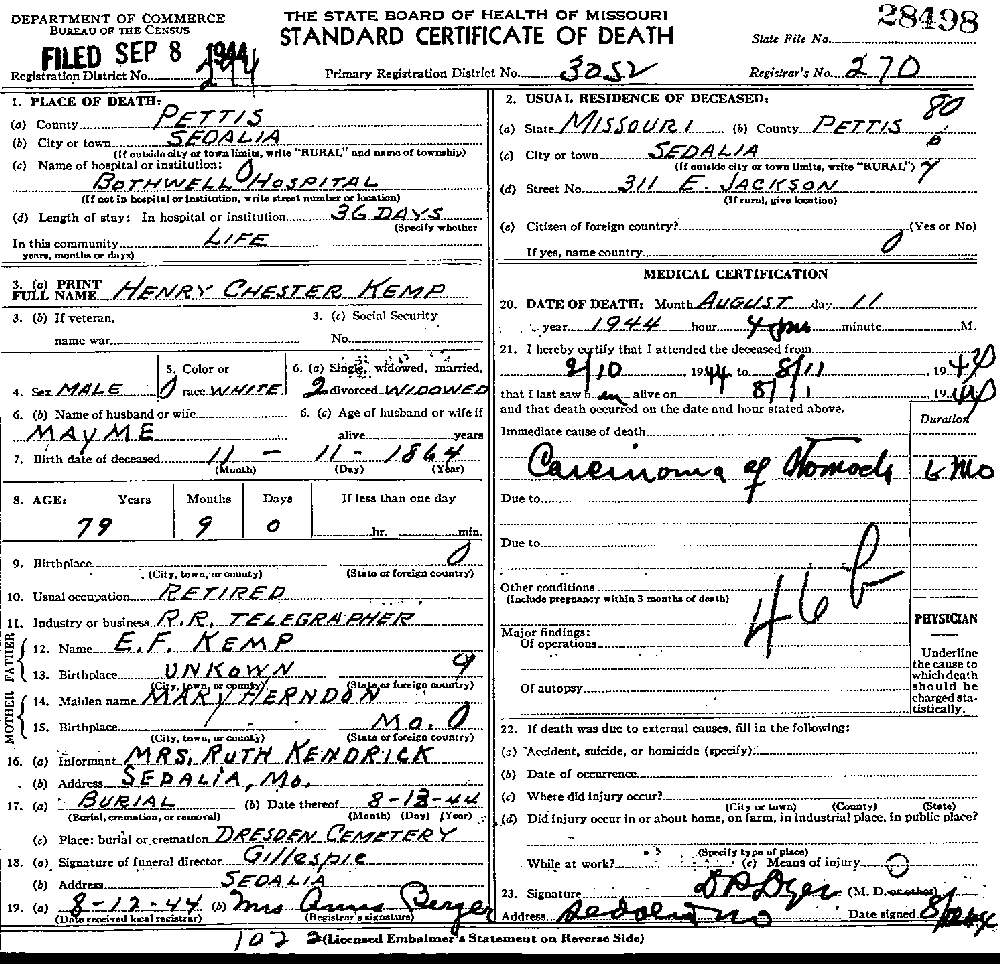 DEPARTMENT OF COMMERCE
BUREAU OF THE CENSUS
THE STATE BOARD OF HEALTH OF MISSOURI
STANDARD CERTIFICATE OF DEATH
28498
State File No.
FILED SEP 8 1944
Registration District No. 274
Primary Registration District No. 3052
Registrar's No. 270
1. PLACE OF DEATH:
(a) County PETTIS
(b) City or town SEDALIA
(If outside city or town limits, write "RURAL" and name of township)
(c) Name of hospital or institution: 0
BOTHWELL HOSPITAL
(If not in hospital or institution, write street number or location)
(d) Length of stay: In hospital or institution 36 DAYS
(Specify whether
In this community LIFE
years, months or days)
3. (a) PRINT FULL NAME HENRY CHESTER KEMP
3. (b) If veteran, name war
3. (c) Social Security No.
4. Sex MALE
5. Color or race WHITE
6. (a) Single, widowed, married, divorced WIDOWED
6. (b) Name of husband or wife
MAYME
6. (c) Age of husband or wife if alive years
7. Birth date of deceased 11 - 11 - 1864
(Month) (Day) (Year)
8. AGE: Years Months Days If less than one day
79 9 0 hr. min.
9. Birthplace 0
(City, town, or county) (State or foreign country)
10. Usual occupation RETIRED
11. Industry or business R.R. TELEGRAPHER
FATHER
12. Name E.F. KEMP
13. Birthplace UNKOWN 9
(City, town, or county) (State or foreign country)
MOTHER
14. Maiden name MARY HERNDON
15. Birthplace MO. 0
(City, town, or county) (State or foreign country)
16. (a) Informant MRS. RUTH KENDRICK
(b) Address SEDALIA, MO.
17. (a) BURIAL (b) Date thereof 8-13-44
(Burial, cremation, or removal) (Month) (Day) (Year)
(c) Place: burial or cremation DRESDEN CEMETERY
18. (a) Signature of funeral director Gillespie
(b) Address SEDALIA
19. (a) 8-12-44 (b) Mrs Anna Berger
(Date received local registrar) (Registrar's signature)
2. USUAL RESIDENCE OF DECEASED: 80
(a) State MISSOURI (b) County PETTIS
(c) City or town SEDALIA
(If outside city or town limits, write "RURAL")
(d) Street No. 311 E. JACKSON
(If rural, give location)
(e) Citizen of foreign country? (Yes or No)
If yes, name country 0
MEDICAL CERTIFICATION
20. DATE OF DEATH: Month AUGUST day 11
year 1944 hour 4 pm minute M.
21. I hereby certify that I attended the deceased from
2/10 1944 to 8/11 1944
that I last saw h im alive on 8/11 1944
and that death occurred on the date and hour stated above.
Duration
Immediate cause of death
Carcinoma of Stomach 6 mo
Due to
Due to
46b
Other conditions
(Include pregnancy within 3 months of death)
Major findings:
Of operations
Of autopsy
PHYSICIAN
Underline
the cause to
which death
should be
charged sta-
tistically.
22. If death was due to external causes, fill in the following:
(a) Accident, suicide, or homicide (specify)
(b) Date of occurrence
(c) Where did injury occur?
(City or town) (County) (State)
(d) Did injury occur in or about home, on farm, in industrial place, in public place?
(Specify type of place)
While at work? (e) Means of injury 0
23. Signature D P Dyer (M. D. or other)
Address Sedalia Mo Date signed
102 2 (Licensed Embalmer's Statement on Reverse Side)